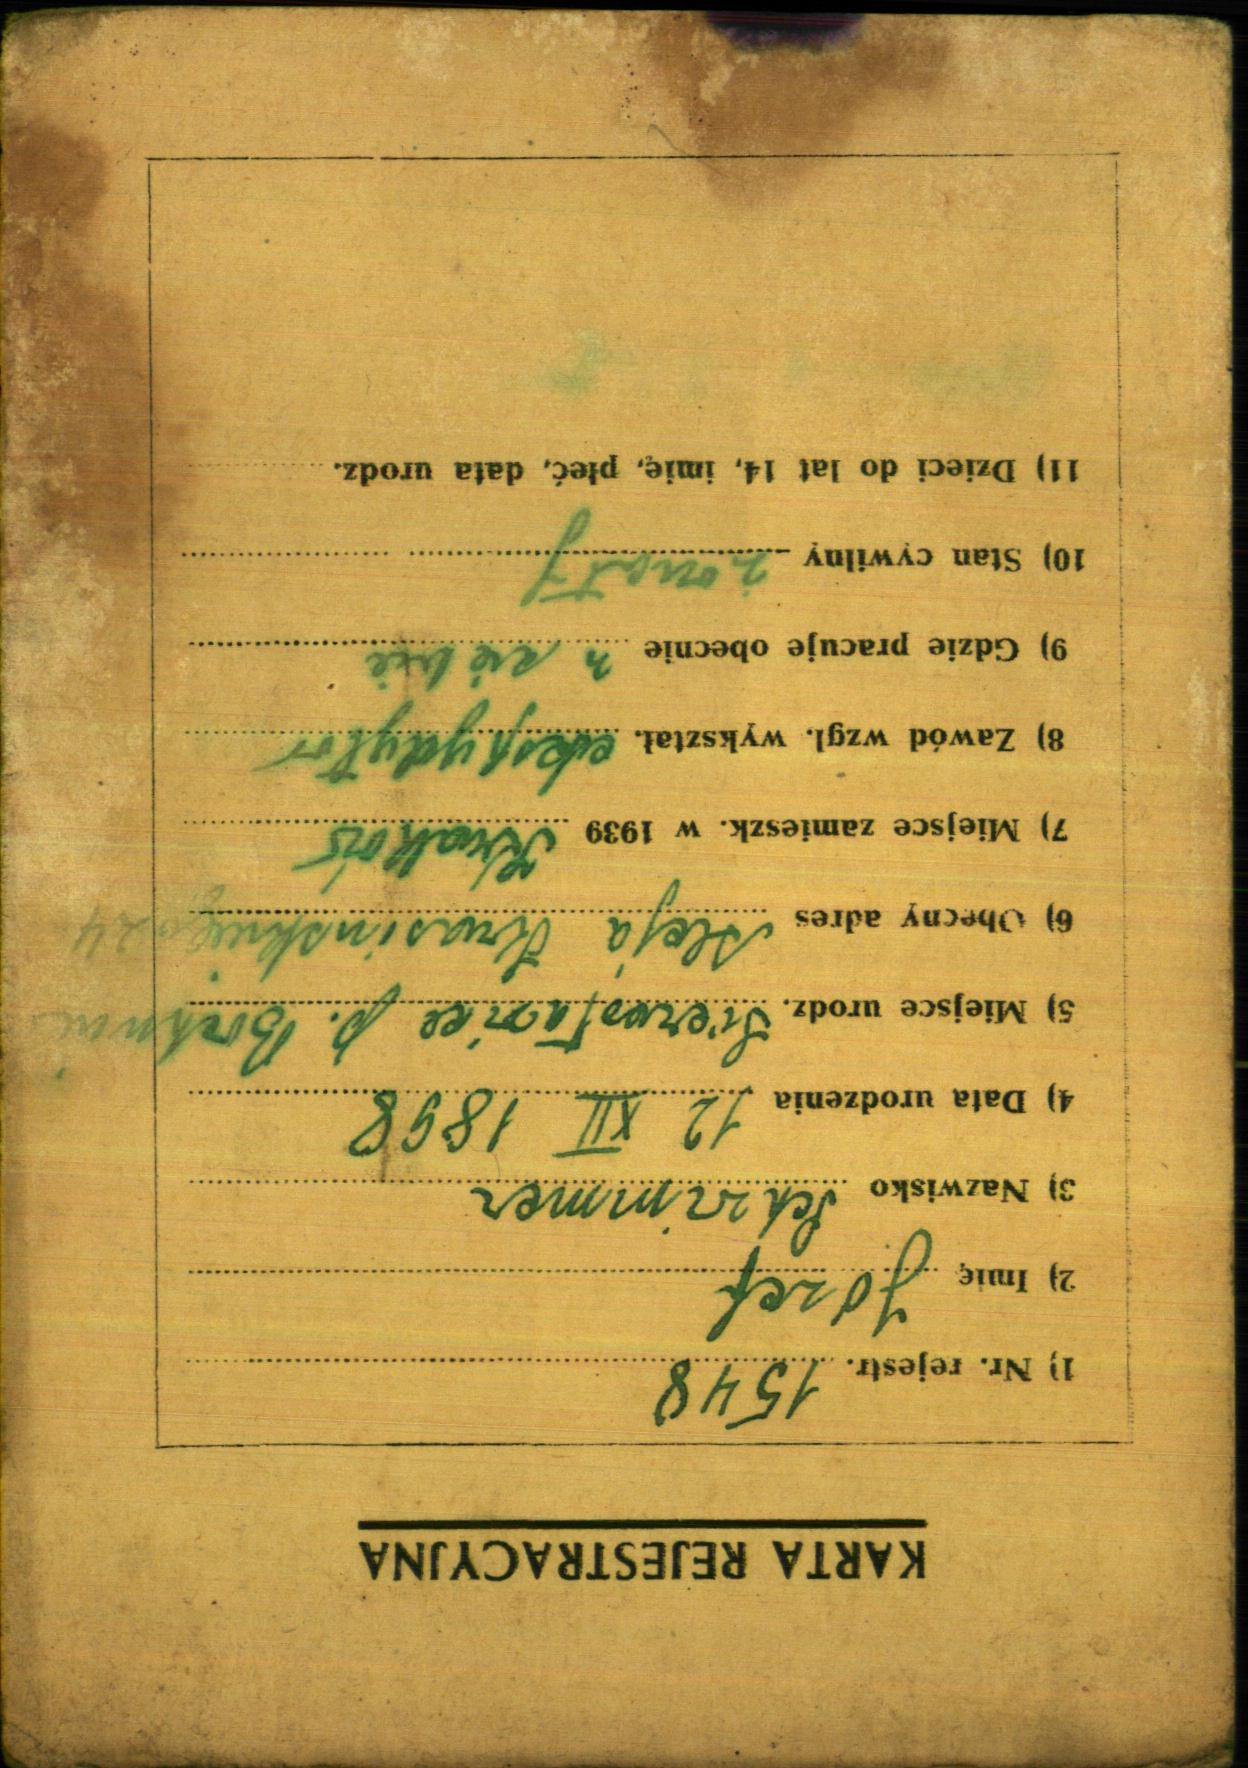 KARTA REJESTRACYJNA
1) Nr. rejestr. 1548
2) Imię Józef
3) Nazwisko Schrimmer
4) Data urodzenia 12 XII 1898
5) Miejsce urodz. p. Bochnia
6) Obecny adres Aleja Krasińskiego 24
7) Miejsce zamieszk. w 1939 Kraków
8) Zawód wzgl. wykształ. ekspedytor
9) Gdzie pracuje obecnie u siebie
10) Stan cywilny żonaty
11) Dzieci do lat 14, imię, płeć, data urodz.